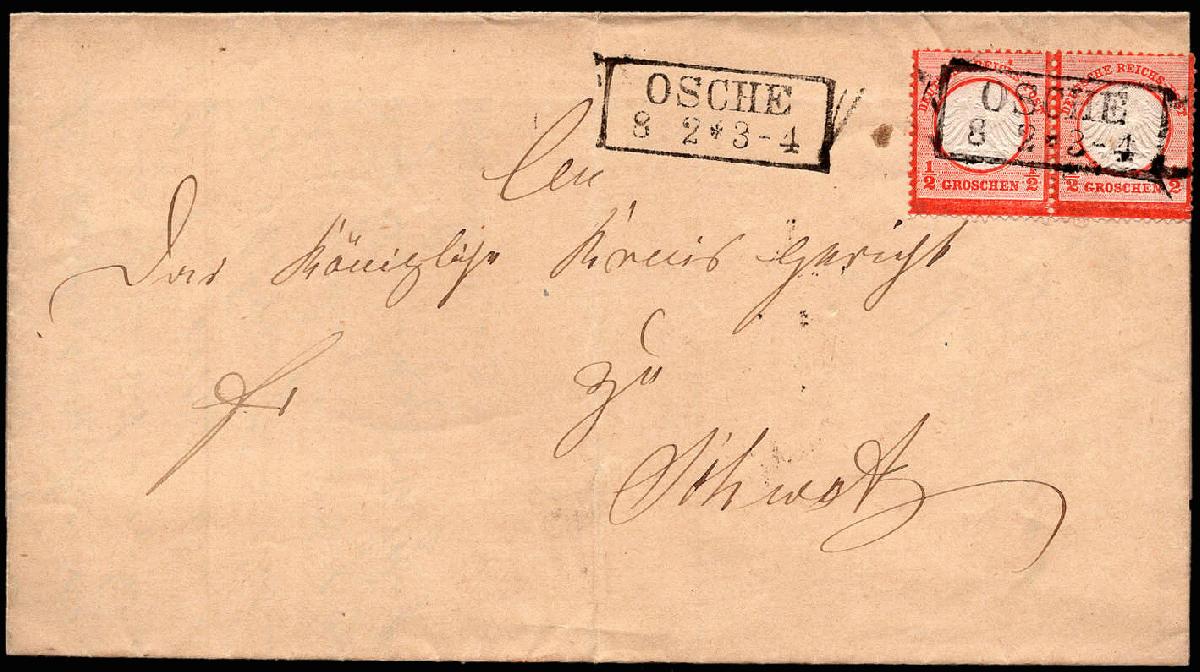 OSCHE
8 2*3-4
DEUTSCHE REICHS-POST
OSCHE
8 2*3-4
1/2 GROSCHEN 1/2
1/2 GROSCHEN 1/2
An
Das Königliche Kreis Gericht
fr zu
Schwetz